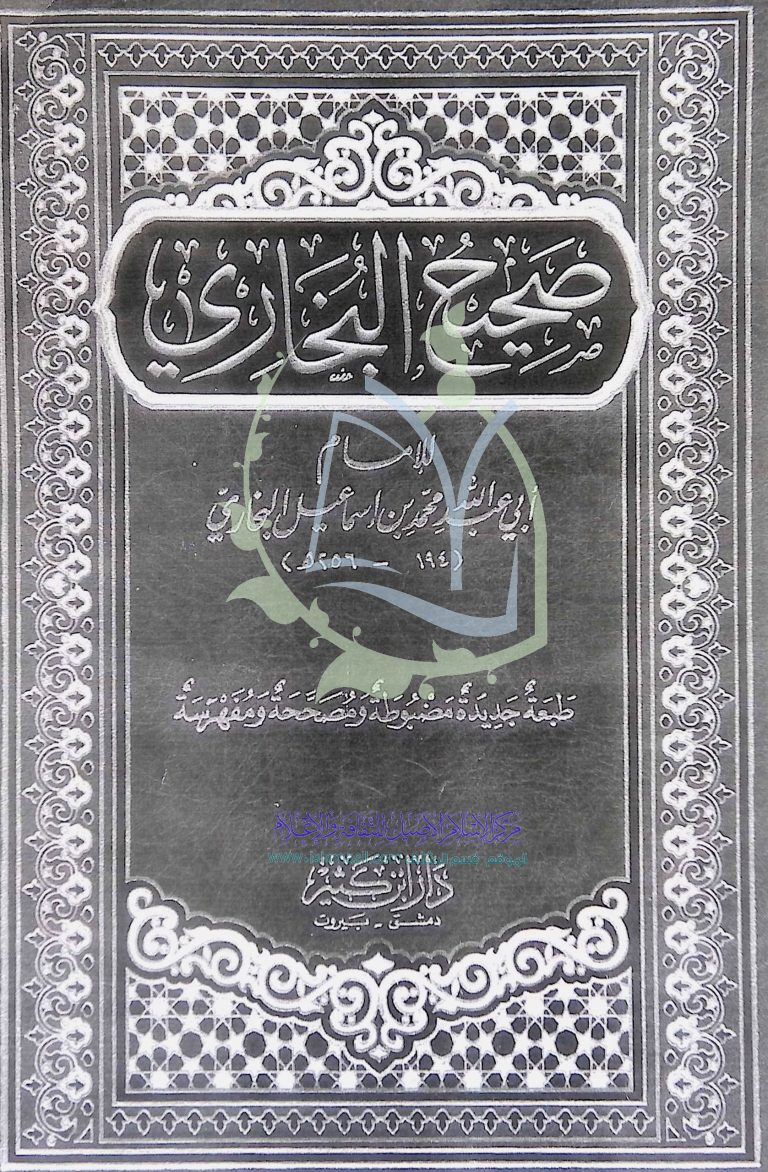 صَحِيحُ البُخَارِي
للإمام
أبي عبد الله محمد بن إسماعيل البخاري
(١٩٤ - ٢٥٦هـ)
طَبعَةٌ جَدِيدَةٌ مَضْبُوطَةٌ وَمُصَحَّحَةٌ وَمُفَهْرَسَةٌ
مركز الإسلام الأصيل للثقافة والإعلام
دار ابن كثير
دمشق - بيروت